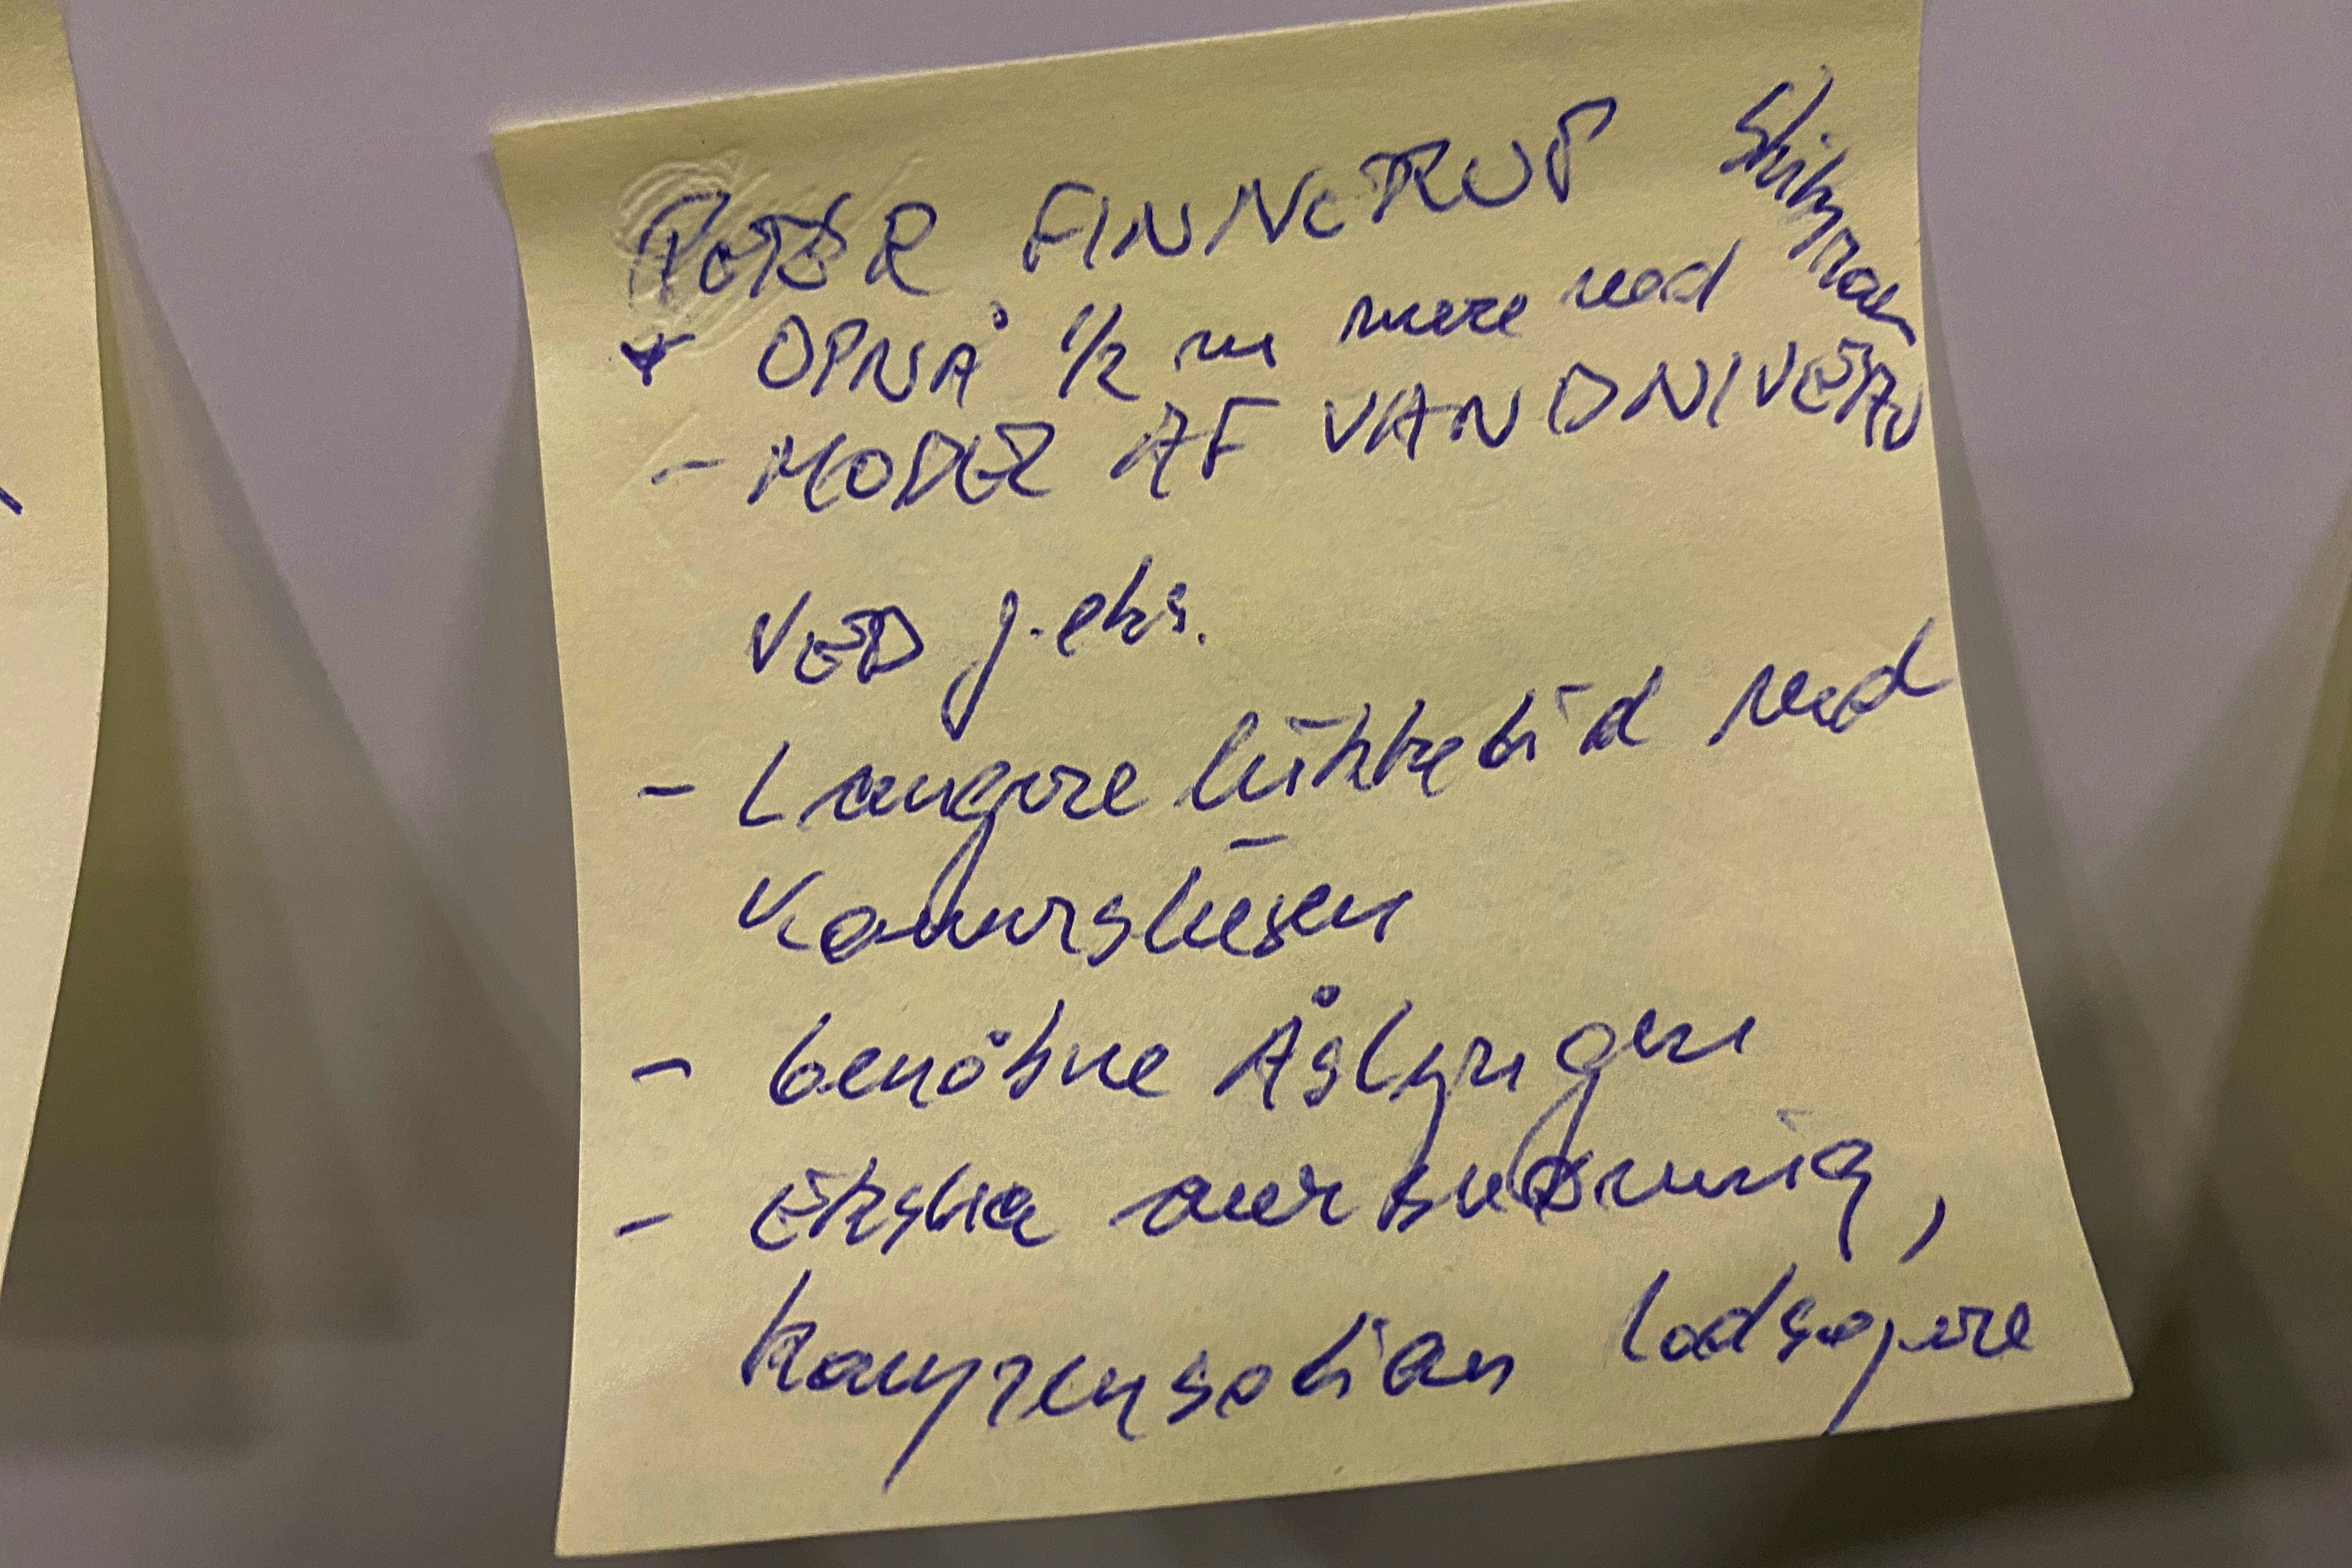 PETER FINNERUP
OPNÅ 1/2 m mere ved
- MODEL AF VANDNIVEAU
VED f.eks.
- Længere lukketid ved
Kammerslusen
- benytte Åslusen
- Ekstra oversvømning,
kompensation lodsejere